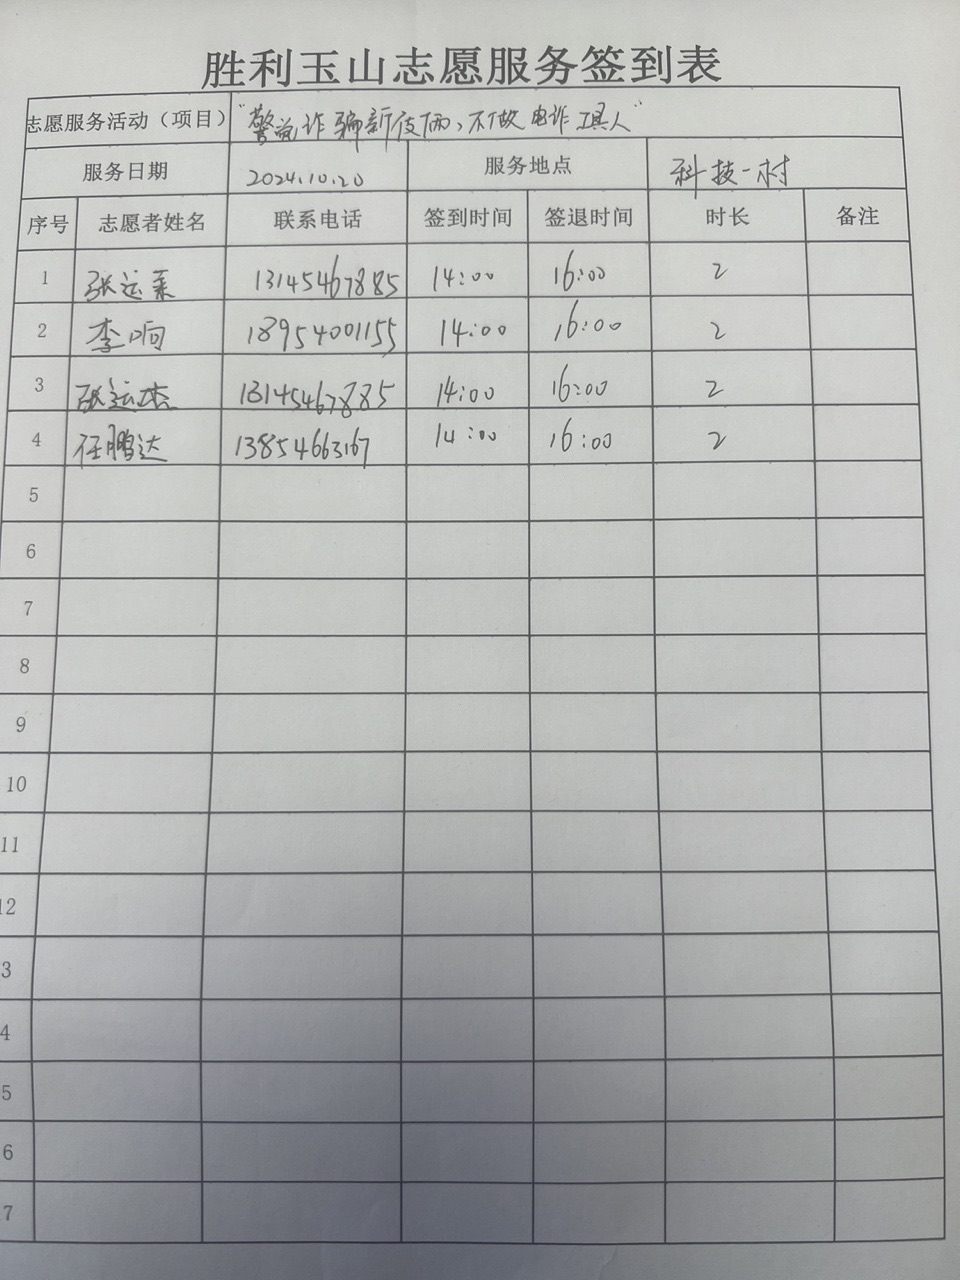 胜利玉山志愿服务签到表
志愿服务活动（项目） “警惕诈骗新伎俩，不做电诈工具人”
服务日期 2024.10.20 服务地点 科技一村
序号 志愿者姓名 联系电话 签到时间 签退时间 时长 备注
1 张运来 13145467885 14:00 16:00 2
2 李响 18954001155 14:00 16:00 2
3 张运杰 13145467885 14:00 16:00 2
4 任鹏达 13854663167 14:00 16:00 2
5
6
7
8
9
10
11
12
3
4
5
6
7